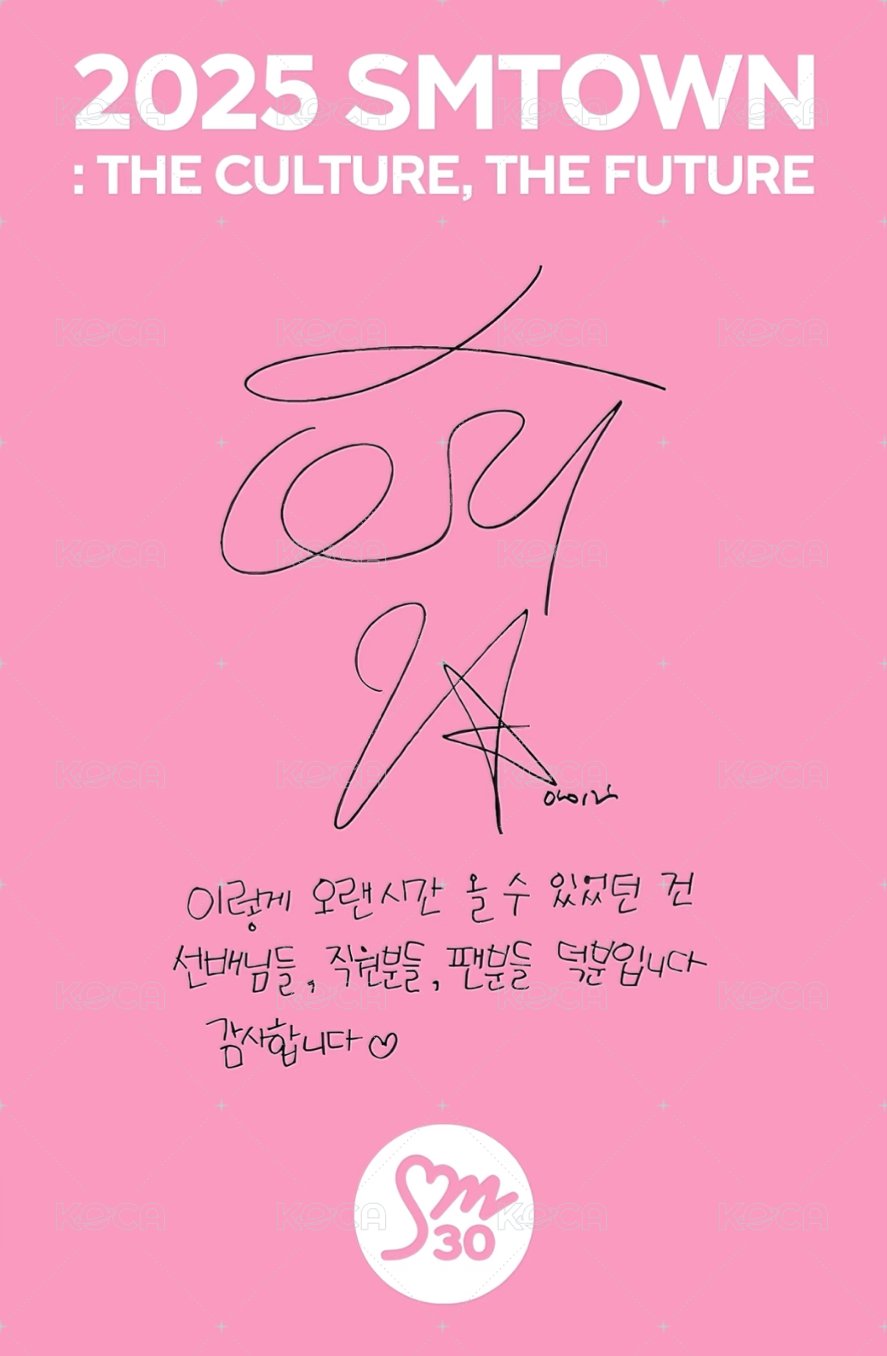 2025 SMTOWN
: THE CULTURE, THE FUTURE
이렇게 오랜시간 올 수 있었던 건
선배님들, 직원분들, 팬분들 덕분입니다
감사합니다♡
Sm
30
KOCA